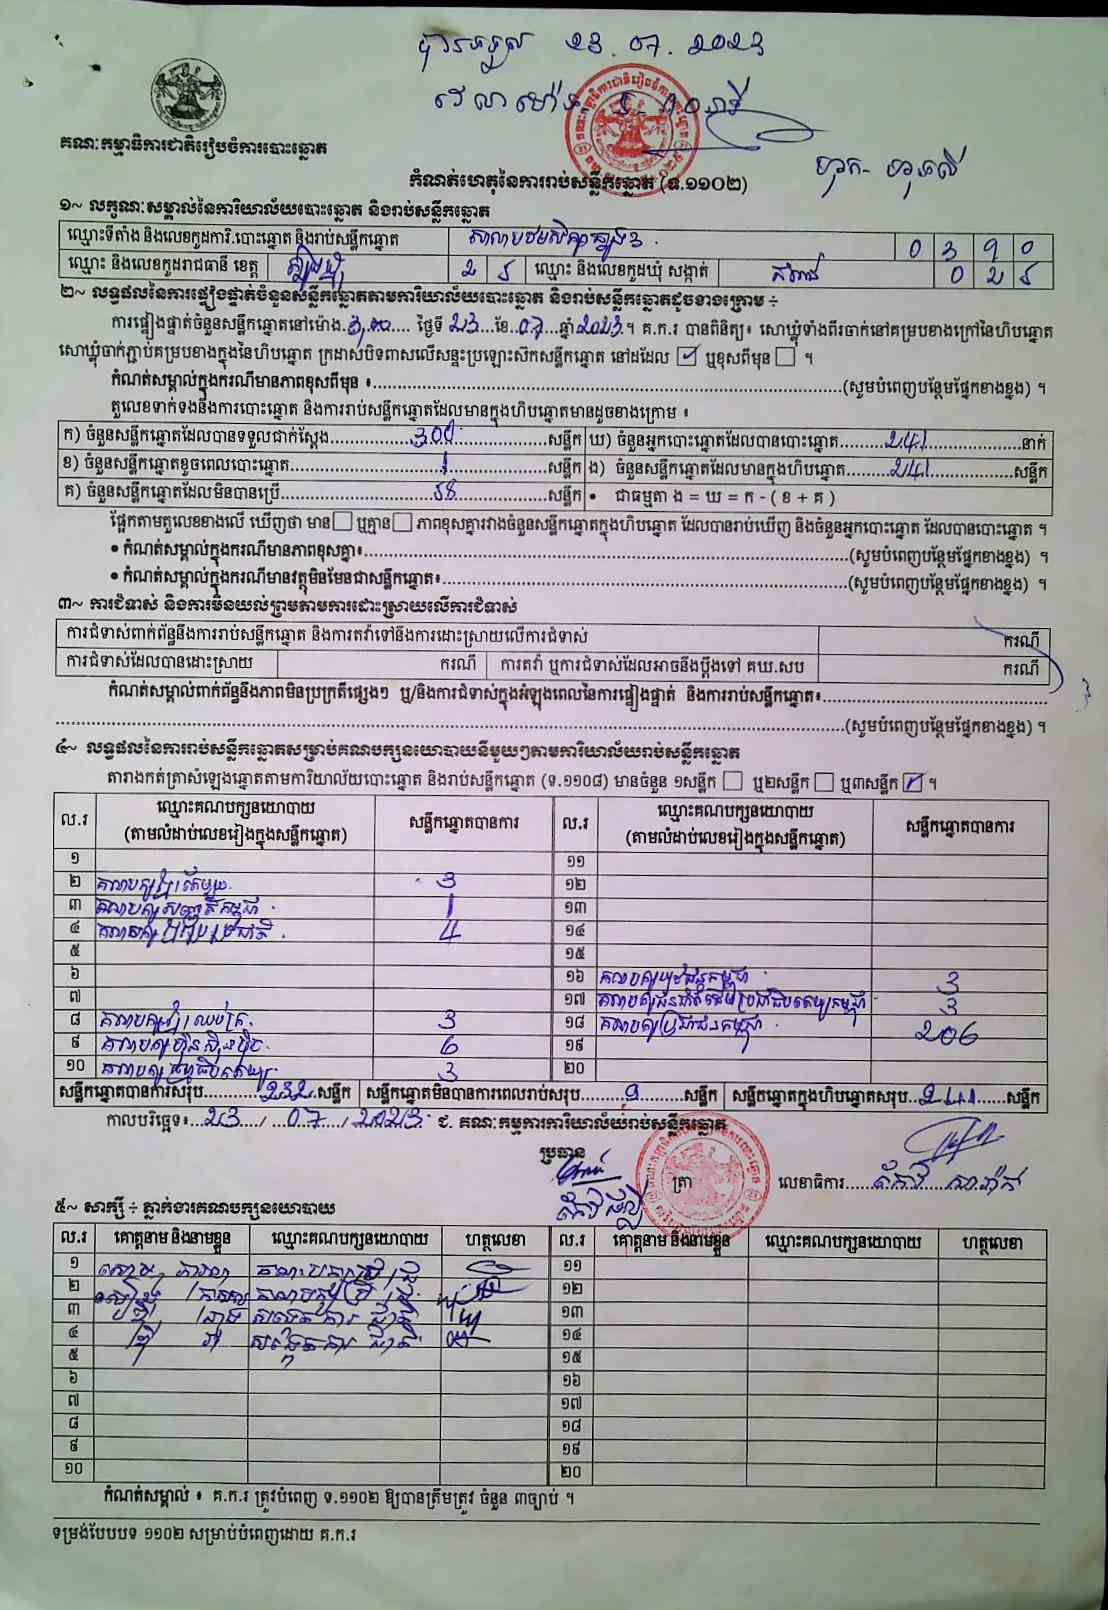 23.07.2023
គណៈកម្មាធិការជាតិរៀបចំការបោះឆ្នោត
កំណត់ហេតុនៃការរាប់សន្លឹកឆ្នោត (ទ.១១០២)
១~ លក្ខណៈសម្គាល់នៃការិយាល័យបោះឆ្នោត និងរាប់សន្លឹកឆ្នោត
ឈ្មោះទីតាំង និងលេខកូដការិ.បោះឆ្នោត និងរាប់សន្លឹកឆ្នោត 0 3 9 0
ឈ្មោះ និងលេខកូដរាជធានី ខេត្ត 2 5 ឈ្មោះ និងលេខកូដឃុំ សង្កាត់ 0 2 5
២~ លទ្ធផលនៃការផ្ទៀងផ្ទាត់ចំនួនសន្លឹកឆ្នោតតាមការិយាល័យបោះឆ្នោត និងរាប់សន្លឹកឆ្នោតដូចខាងក្រោម ÷
ការផ្ទៀងផ្ទាត់ចំនួនសន្លឹកឆ្នោតនៅម៉ោង 3,00 ថ្ងៃទី 23 ខែ 07 ឆ្នាំ 2023 ។ គ.ក.រ បានពិនិត្យ៖ សោឃ្លុំទាំងពីរចាក់នៅគម្របខាងក្រៅនៃហិបឆ្នោត
សោឃ្លុំចាក់ភ្ជាប់គម្របខាងក្នុងនៃហិបឆ្នោត ក្រដាសបិទពាសលើសន្ទះប្រឡោះស៊កសន្លឹកឆ្នោត នៅដដែល ☑ ឬខុសពីមុន ☐ ។
កំណត់សម្គាល់ក្នុងករណីមានភាពខុសពីមុន ៖ (សូមបំពេញបន្ថែមផ្នែកខាងខ្នង) ។
តួលេខទាក់ទងនឹងការបោះឆ្នោត និងការរាប់សន្លឹកឆ្នោតដែលមានក្នុងហិបឆ្នោតមានដូចខាងក្រោម ៖
ក) ចំនួនសន្លឹកឆ្នោតដែលបានទទួលជាក់ស្ដែង 300 សន្លឹក ឃ) ចំនួនអ្នកបោះឆ្នោតដែលបានបោះឆ្នោត 241 នាក់
ខ) ចំនួនសន្លឹកឆ្នោតខូចពេលបោះឆ្នោត 1 សន្លឹក ង) ចំនួនសន្លឹកឆ្នោតដែលមានក្នុងហិបឆ្នោត 241 សន្លឹក
គ) ចំនួនសន្លឹកឆ្នោតដែលមិនបានប្រើ 58 សន្លឹក • ជាធម្មតា ង = ឃ = ក - ( ខ + គ )
ផ្អែកតាមតួលេខខាងលើ ឃើញថា មាន ☐ ឬគ្មាន ☐ ភាពខុសគ្នារវាងចំនួនសន្លឹកឆ្នោតក្នុងហិបឆ្នោត ដែលបានរាប់ឃើញ និងចំនួនអ្នកបោះឆ្នោត ដែលបានបោះឆ្នោត ។
• កំណត់សម្គាល់ក្នុងករណីមានភាពខុសគ្នា៖ (សូមបំពេញបន្ថែមផ្នែកខាងខ្នង) ។
• កំណត់សម្គាល់ក្នុងករណីមានវត្ថុមិនមែនជាសន្លឹកឆ្នោត៖ (សូមបំពេញបន្ថែមផ្នែកខាងខ្នង) ។
៣~ ការជំទាស់ និងការមិនយល់ព្រមតាមការដោះស្រាយលើការជំទាស់
ការជំទាស់ពាក់ព័ន្ធនឹងការរាប់សន្លឹកឆ្នោត និងការតវ៉ាទៅនឹងការដោះស្រាយលើការជំទាស់ ករណី
ការជំទាស់ដែលបានដោះស្រាយ ករណី ការតវ៉ា ឬការជំទាស់ដែលអាចនឹងប្ដឹងទៅ គឃ.សប ករណី
កំណត់សម្គាល់ពាក់ព័ន្ធនឹងភាពមិនប្រក្រតីផ្សេងៗ ឬ/និងការជំទាស់ក្នុងអំឡុងពេលនៃការផ្ទៀងផ្ទាត់ និងការរាប់សន្លឹកឆ្នោត៖
(សូមបំពេញបន្ថែមផ្នែកខាងខ្នង) ។
៤~ លទ្ធផលនៃការរាប់សន្លឹកឆ្នោតសម្រាប់គណបក្សនយោបាយនីមួយៗតាមការិយាល័យរាប់សន្លឹកឆ្នោត
តារាងកត់ត្រាសំឡេងឆ្នោតតាមការិយាល័យបោះឆ្នោត និងរាប់សន្លឹកឆ្នោត (ទ.១១០៨) មានចំនួន ១សន្លឹក ☐ ឬ២សន្លឹក ☐ ឬ៣សន្លឹក ☑ ។
ល.រ ឈ្មោះគណបក្សនយោបាយ (តាមលំដាប់លេខរៀងក្នុងសន្លឹកឆ្នោត) សន្លឹកឆ្នោតបានការ ល.រ ឈ្មោះគណបក្សនយោបាយ (តាមលំដាប់លេខរៀងក្នុងសន្លឹកឆ្នោត) សន្លឹកឆ្នោតបានការ
១ ១១
២ 3 ១២
៣ 1 ១៣
៤ 4 ១៤
៥ ១៥
៦ ១៦ គណបក្សយុវជនកម្ពុជា 3
៧ ១៧ 3
៨ 3 ១៨ គណបក្សប្រជាជនកម្ពុជា 206
៩ គណបក្សហ៊្វុនស៊ិនប៉ិច 6 ១៩
១០ 3 ២០
សន្លឹកឆ្នោតបានការសរុប 232 សន្លឹក សន្លឹកឆ្នោតមិនបានការពេលរាប់សរុប 9 សន្លឹក សន្លឹកឆ្នោតក្នុងហិបឆ្នោតសរុប 241 សន្លឹក
កាលបរិច្ឆេទ៖ 23 / 07 / 2023 ជ. គណៈកម្មការការិយាល័យរាប់សន្លឹកឆ្នោត
ប្រធាន
ត្រា លេខាធិការ
៥~ សាក្សី ÷ ភ្នាក់ងារគណបក្សនយោបាយ
ល.រ គោត្តនាម និងនាមខ្លួន ឈ្មោះគណបក្សនយោបាយ ហត្ថលេខា ល.រ គោត្តនាម និងនាមខ្លួន ឈ្មោះគណបក្សនយោបាយ ហត្ថលេខា
១ ១១
២ ១២
៣ ១៣
៤ ១៤
៥ ១៥
៦ ១៦
៧ ១៧
៨ ១៨
៩ ១៩
១០ ២០
កំណត់សម្គាល់ ៖ គ.ក.រ ត្រូវបំពេញ ទ.១១០២ ឱ្យបានត្រឹមត្រូវ ចំនួន ៣ច្បាប់ ។
ទម្រង់បែបបទ ១១០២ សម្រាប់បំពេញដោយ គ.ក.រ